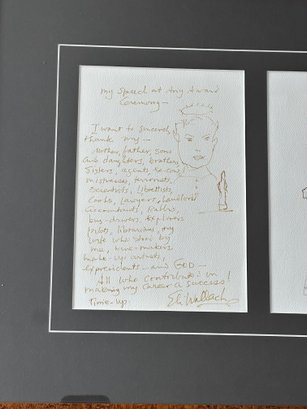 My Speech at Any Award
Ceremony —
I want to sincerely
thank my —
Mother, father, sons
and daughters, brothers
Sisters, agents
mistresses,
Scientists, librettists,
Cooks, Lawyers, Landlords
Accountants,
bus-drivers,
pilots, librarians, my
wife who stood by
me,
make-up artists,
expresidents — and GOD —
All who contributed in
making my career a success!
Time-up.
Eli Wallach